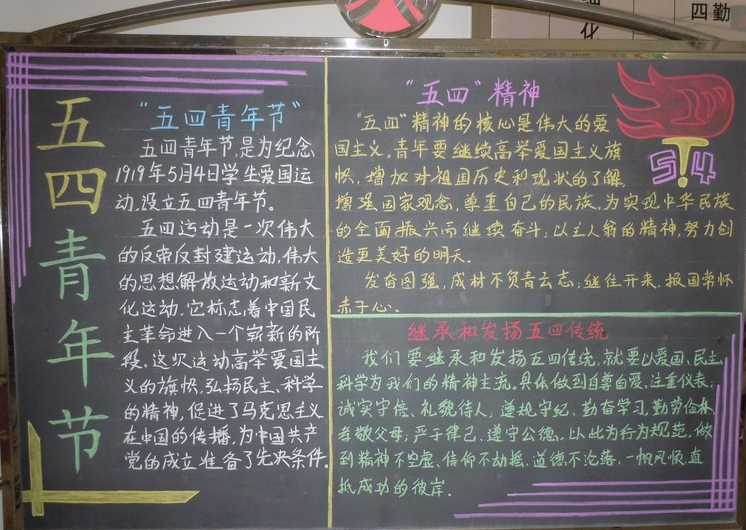 四勤
细
化
五四青年节
"五四青年节"
五四青年节,是为纪念
1919年5月4日学生爱国运
动,设立五四青年节。
五四运动是一次伟大
的反帝反封建运动,伟大
的思想解放运动和新文
化运动,它标志着中国民
主革命进入一个崭新的阶
段。这次运动高举爱国主
义的旗帜,弘扬民主、科学
的精神,促进了马克思主义
在中国的传播,为中国共产
党的成立准备了先决条件。
"五四"精神
"五四"精神的核心是伟大的爱
国主义,青年要继续高举爱国主义旗
帜,增加对祖国历史和现状的了解,
增强国家观念,尊重自己的民族,为实现中华民族
的全面振兴而继续奋斗;以主人翁的精神,努力创
造更美好的明天。
发奋图强,成材不负青云志;继往开来,报国常怀
赤子心。
5.4
继承和发扬五四传统
我们要继承和发扬五四传统,就要以爱国、民主、
科学为我们的精神主流。具体做到自尊自爱、注重仪表;
诚实守信、礼貌待人;遵规守纪、勤奋学习,勤劳俭朴、
孝敬父母;严于律己、遵守公德。以此为行为规范,做
到精神不空虚、信仰不动摇、道德不沦落,一帆风顺,直
抵成功的彼岸。